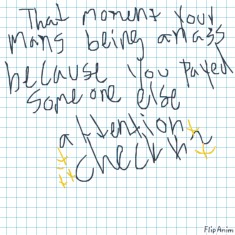 That moment your
mans being an ass
because you payed
someone else
attention
check h2
FlipAnim